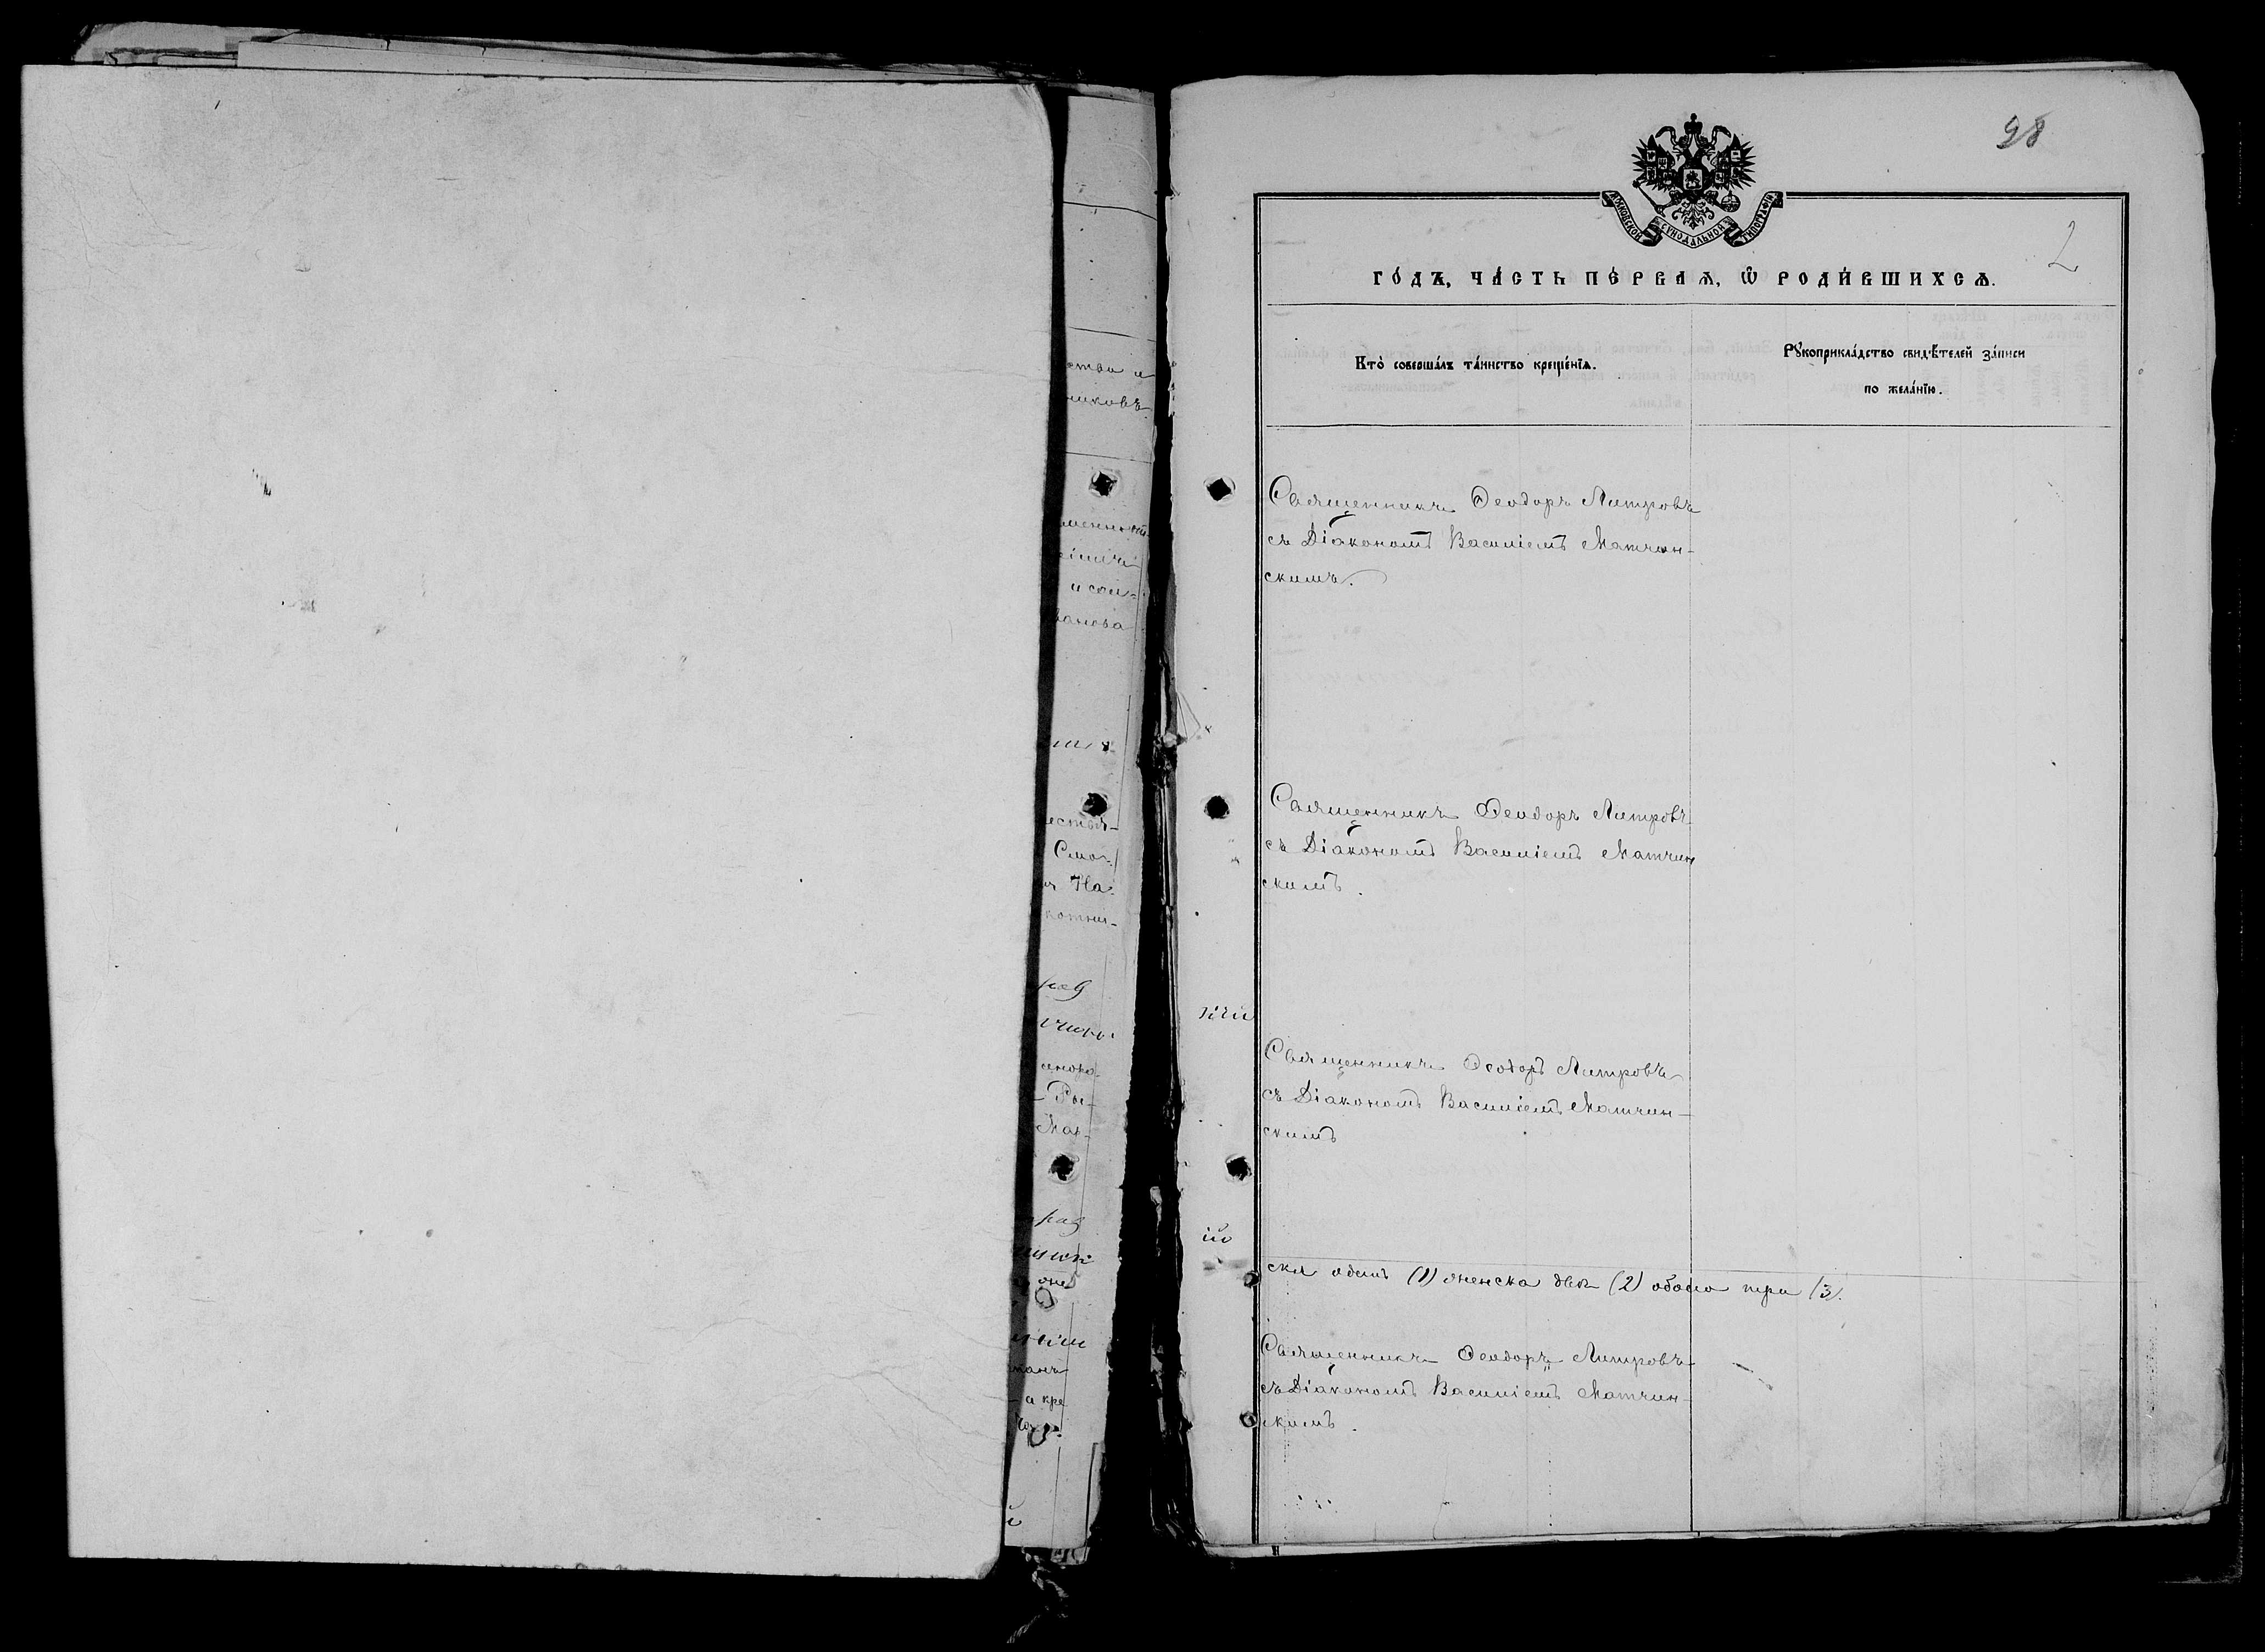 98
МОСКОВСКОЙ СѴНОДАЛЬНОЙ ТИПОГРАФІИ
2
ГО́ДЪ, ЧА́СТЬ ПЕ́РВАѦ, Ѡ҆ РОДИ́ВШИХСѦ.
Кто̀ соверша́лъ та́инство креще́нїѧ.
Рꙋкоприкла́дство свидѣ́телей за́писи
по жела́нїю.
ства и
никовъ
Священникъ Ѳеодоръ Литровъ
съ Діакономъ Василіемъ Матчин-
скимъ.
Священникъ Ѳеодоръ Литровъ
съ Діакономъ Василіемъ Матчин
скимъ.
Священникъ Ѳеодоръ Литровъ
съ Діакономъ Василіемъ Матчин-
скимъ
ска одинъ (1) женска два (2) обоего три (3).
Священникъ Ѳеодоръ Литровъ
съ Діакономъ Василіемъ Матчин-
скимъ.